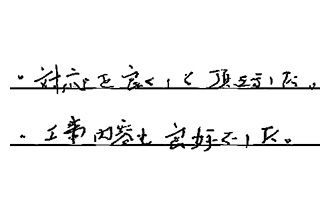 ・対応も良くして頂きました。
・工事内容も良好でした。